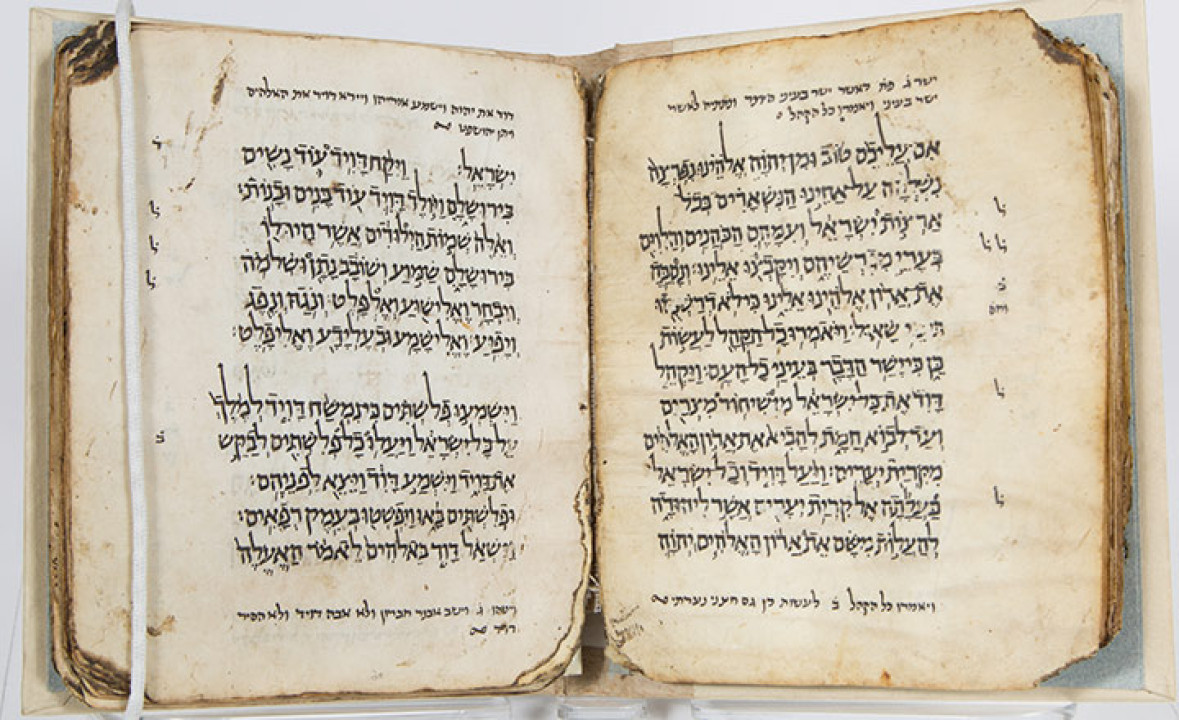 ישר בעיני ויאמרו כל הקהל
אם עליכם טוב ומן יהוה אלהינו נפרצה
נשלחה על אחינו הנשארים בכל
ארצות ישראל ועמהם הכהנים והלוים
בערי מגרשיהם ויקבצו אלינו ונסבה
את ארון אלהינו אלינו כי לא דרשנהו
בימי שאול׃ ויאמרו כל הקהל לעשות
כן כי ישר הדבר בעיני כל העם׃ ויקהל
דוד את כל ישראל מן שיחור מצרים
ועד לבוא חמת להביא את ארון האלהים
מקרית יערים׃ ויעל דויד וכל ישראל
בעלתה אל קרית יערים אשר ליהודה
להעלות משם את ארון האלהים יהוה
ויאמרו כל הקהל ב לעשות כן גם חצני נערתי
דוד את יהוה וישמע אוריהו ויירא דויד את האלהים
ויהן יהושפט
ישראל׃ ויקח דויד עוד נשים
בירושלם ויולד דויד עוד בנים ובנות׃
ואלה שמות הילודים אשר היו לו
בירושלם שמוע ושובב נתן ושלמה׃
ויבחר ואלישוע ואלפלט׃ ונגה ונפג
ויפיע׃ ואלישמע ובעלידע ואליפלט׃
וישמעו פלשתים כי נמשח דויד למלך
על כל ישראל ויעלו כל פלשתים לבקש
את דויד וישמע דויד ויצא לפניהם׃
ופלשתים באו ויפשטו בעמק רפאים׃
וישאל דויד באלהים לאמר האעלה
ג וישב אבנר חברון ולא אבה דויד ולא הסיר
דויד